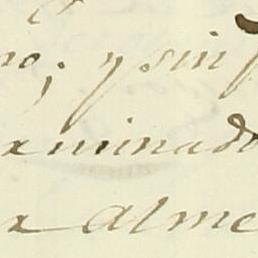 no; y sin
xaminado
x Alme